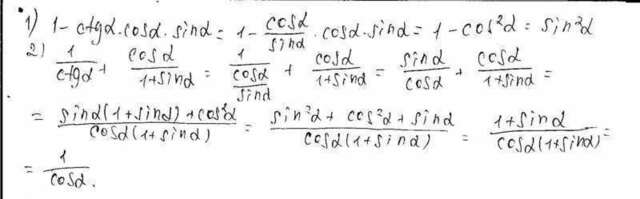 1) 1 - ctgα·cosα·sinα = 1 - cosα/sinα · cosα·sinα = 1 - cos²α = sin²α
2) 1/ctgα + cosα/(1+sinα) = 1/(cosα/sinα) + cosα/(1+sinα) = sinα/cosα + cosα/(1+sinα) =
= (sinα(1+sinα)+cos²α)/(cosα(1+sinα)) = (sin²α + cos²α + sinα)/(cosα(1+sinα)) = (1+sinα)/(cosα(1+sinα)) =
= 1/cosα.